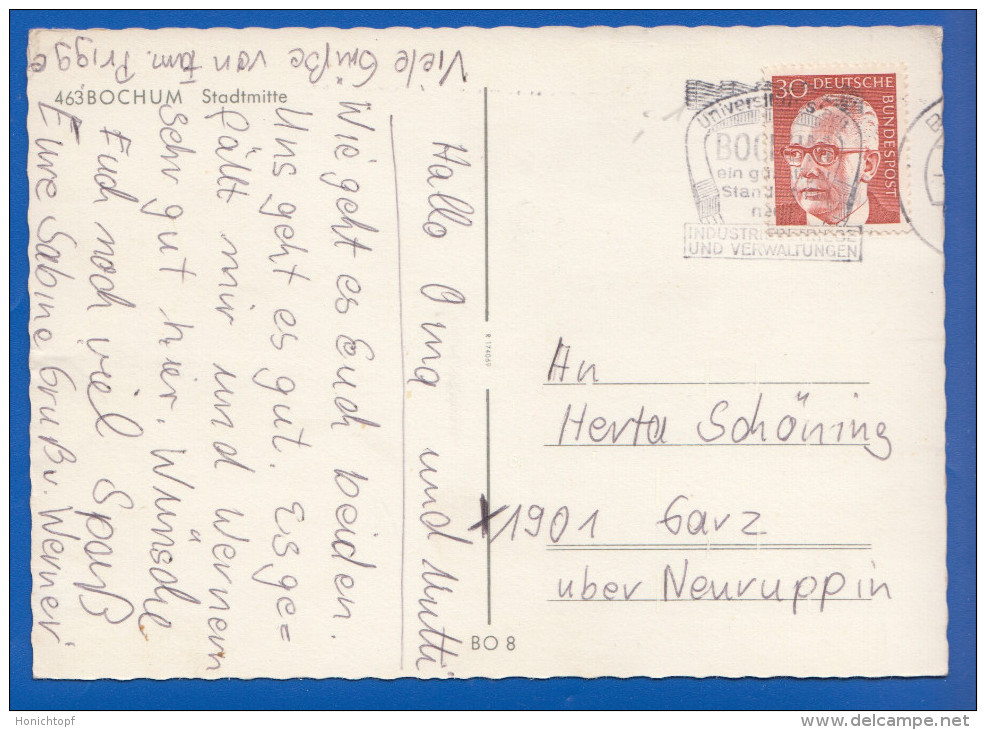 463 BOCHUM Stadtmitte
Hallo Oma und Mutti
Wie geht es Euch beiden.
Uns geht es gut. Es ge=
fällt mir und Wernern
sehr gut hier. Wünsche
Euch noch viel Spaß
Eure Sabine Gruß v. Werner
Viele Grüße von Fam. Prigge
R 174069
BO 8
BOCHUM
ein
INDUSTRIE
UND VERWALTUNGEN
30 DEUTSCHE
BUNDESPOST
An
Herta Schöning
1901 Garz
über Neuruppin
Honichtopf
www.delcampe.net